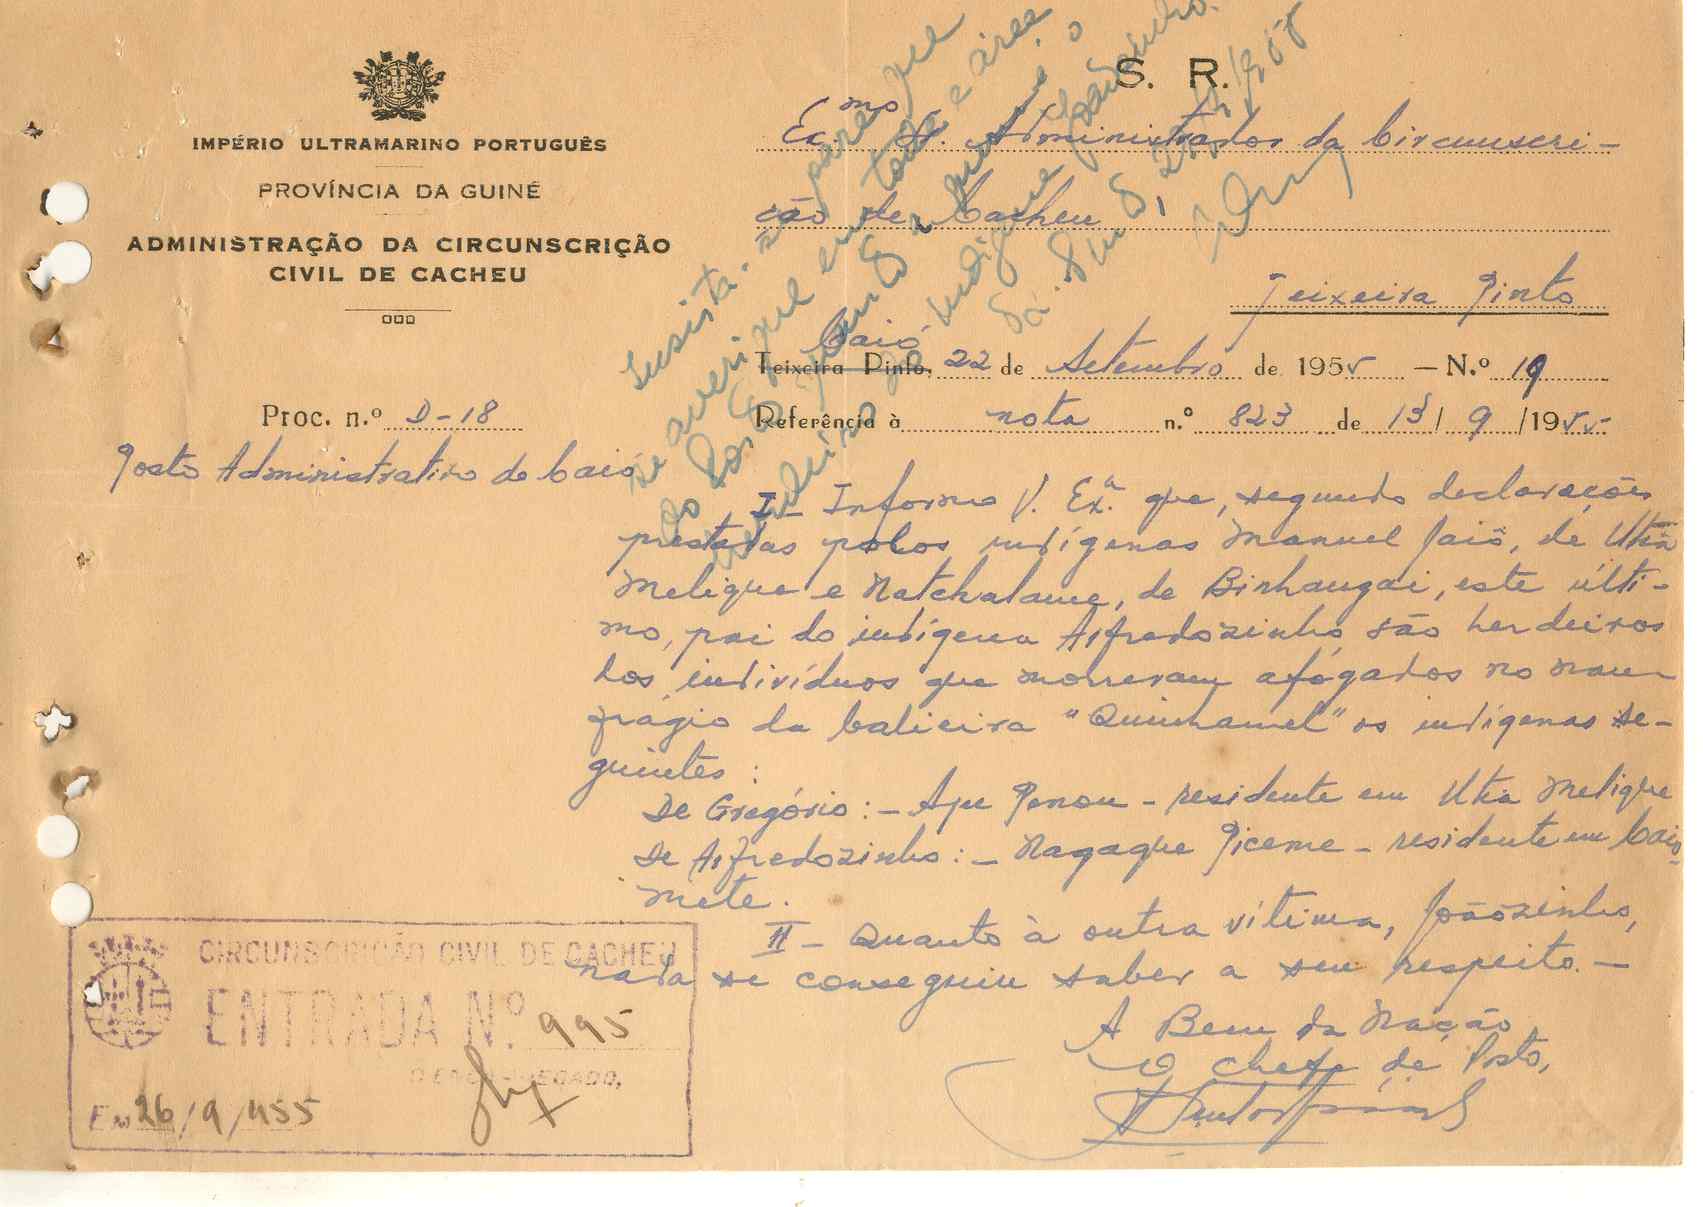 S. R.
IMPÉRIO ULTRAMARINO PORTUGUÊS
PROVÍNCIA DA GUINÉ
ADMINISTRAÇÃO DA CIRCUNSCRIÇÃO
CIVIL DE CACHEU
Exmo Sr. Administrador da Circunscri-
ção de Cacheu
Teixeira Pinto
Caió
Teixeira Pinto, 22 de Setembro de 1955 — N.º 19
Proc. n.º D-18
Referência à nota n.º 823 de 13/9/1955
Posto Administrativo de Caió
I - Informo V. Ex.ª que, segundo declarações
prestadas pelos indígenas Manuel Jaió, de Utia
Melique e Natchalame, de Binhangai, este últi-
mo, pai do indígena Alfredozinho são herdeiros
dos indivíduos que morreram afogados no nau-
frágio da balieira "Quinhamel" os indígenas se-
guintes:
De Gregório: - Apu Penou - residente em Utia Melique
De Alfredozinho: - Nagaque Piceme - residente em Caio-
mete.
II - Quanto à outra vítima, Joãozinho,
nada se conseguiu saber a seu respeito. -
A Bem da Nação
O Chefe de Posto,
Insista. se para que
se averigue em toda a área
do Posto
CIRCUNSCRIÇÃO CIVIL DE CACHEU
ENTRADA N.º 995
O ENCARREGADO,
EM 26/9/955